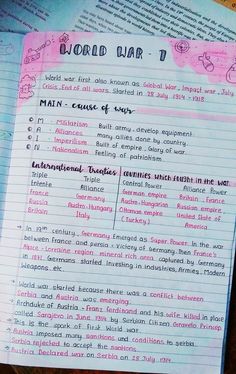 WORLD WAR - 1
World war first also known as Global War, Impact war, July
Crisis, End of all wars. Started in 28 July 1914 - 1918.
MAIN - cause of war
M - Militarism Built army, develop equipment.
A - Alliances many allies done by country.
I - Imperialism Built of empire. Glory of war.
N - Nationalism Feeling of patriotism.
International Treaties
Triple Triple
Intente Alliance
France Germany
Russia Austro-Hungary
Britain Italy
countries which fought in the war
Central Power Alliance Power
German empire Britain, France
Austro-Hungarian Russian empire
Ottoman empire United State of
(Turkey) America
In 19th century, Germany Emerged as Super Power. In the war
between France and persia. Victory of Germany. then France's
Alsace - Lorraine region mineral rich area captured by Germany
in 1871. Germany started Investing in industries, Armies, Modern
Weapons etc.
World war started because there was a conflict between
Serbia and Austria was emerging.
Archduke of Austria - Franz ferdinand and his wife killed in place
called Sarajevo in June 1914 by Serbian Citizen Gavrello Princep
This is the spark of First World War.
Austria imposed many sanctions and conditions to serbia.
Serbia rejected to accept the
Austria Declared war on Serbia on 28 July 1914